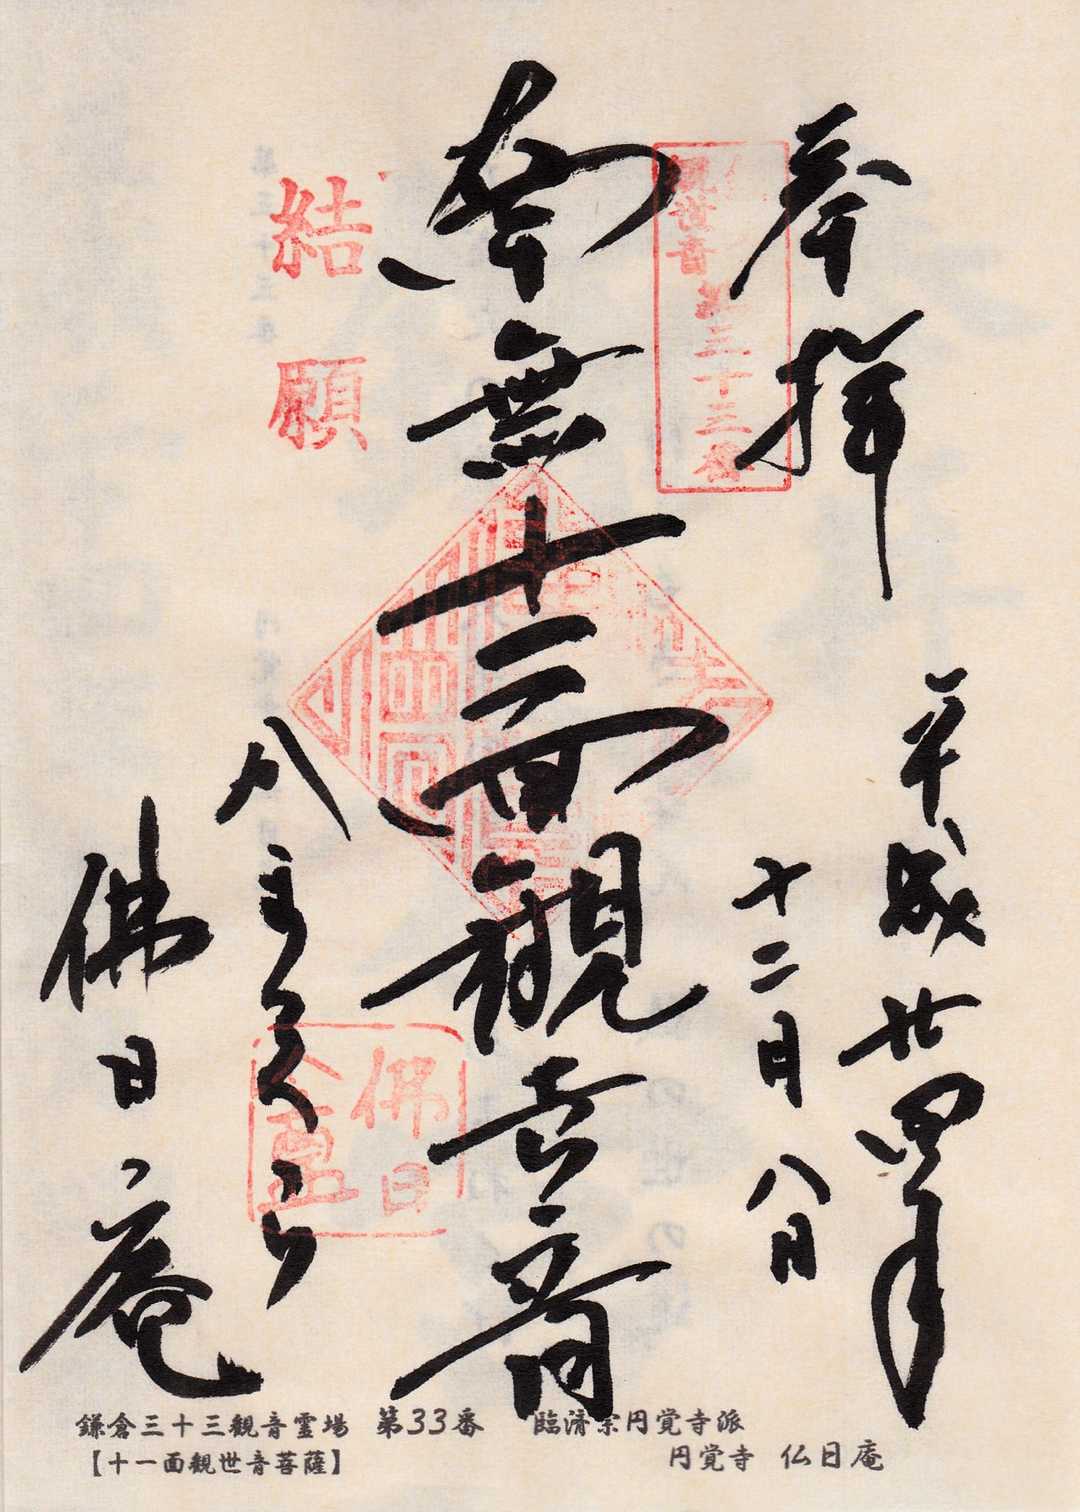 奉拝
平成廿四年
十二月八日
南無十一面観世音
かまくら
佛日庵
結願
観世音第三十三番
佛日
鎌倉三十三観音霊場 第33番 臨済宗円覚寺派
【十一面観世音菩薩】 円覚寺 仏日庵